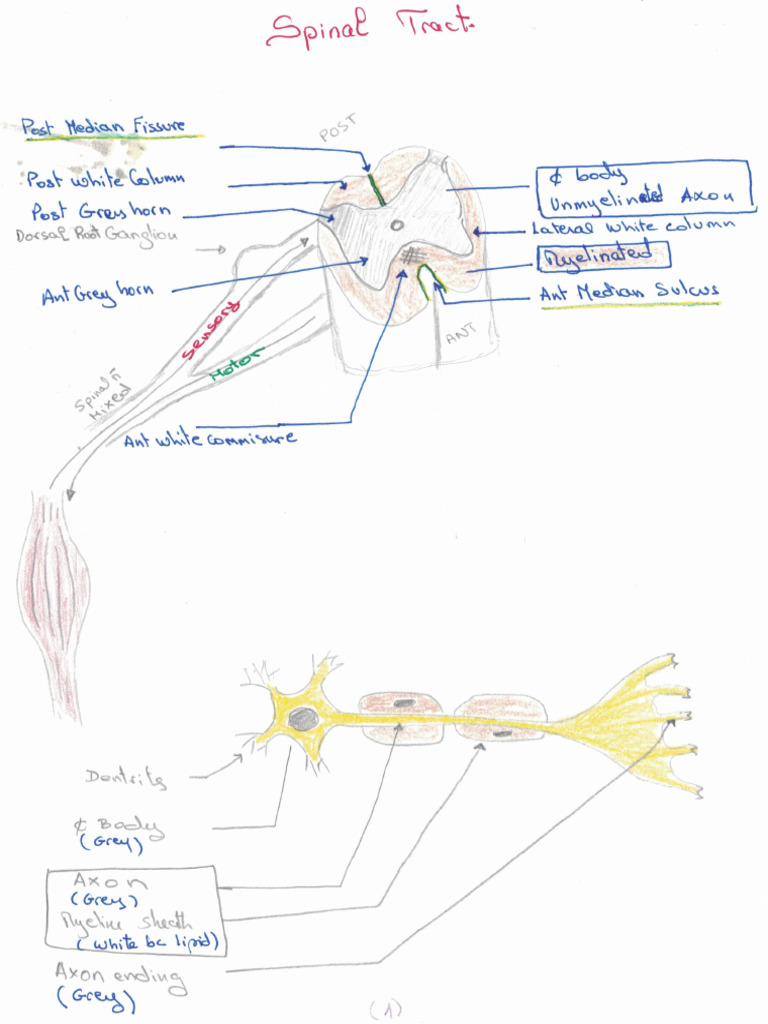 Spinal Tract
POST
Post Median Fissure
Post white Column
Post Grey horn
Dorsal Root Ganglion
Ant Grey horn
¢ body
Unmyelinated Axon
Lateral white column
Myelinated
Ant Median Sulcus
ANT
Sensory
Motor
Spinal n̄
Mixed
Ant white commisure
Dentrits
¢ Body
(Grey)
Axon
(Grey)
Myeline sheath
(white bc lipid)
Axon ending
(Grey)
(1)